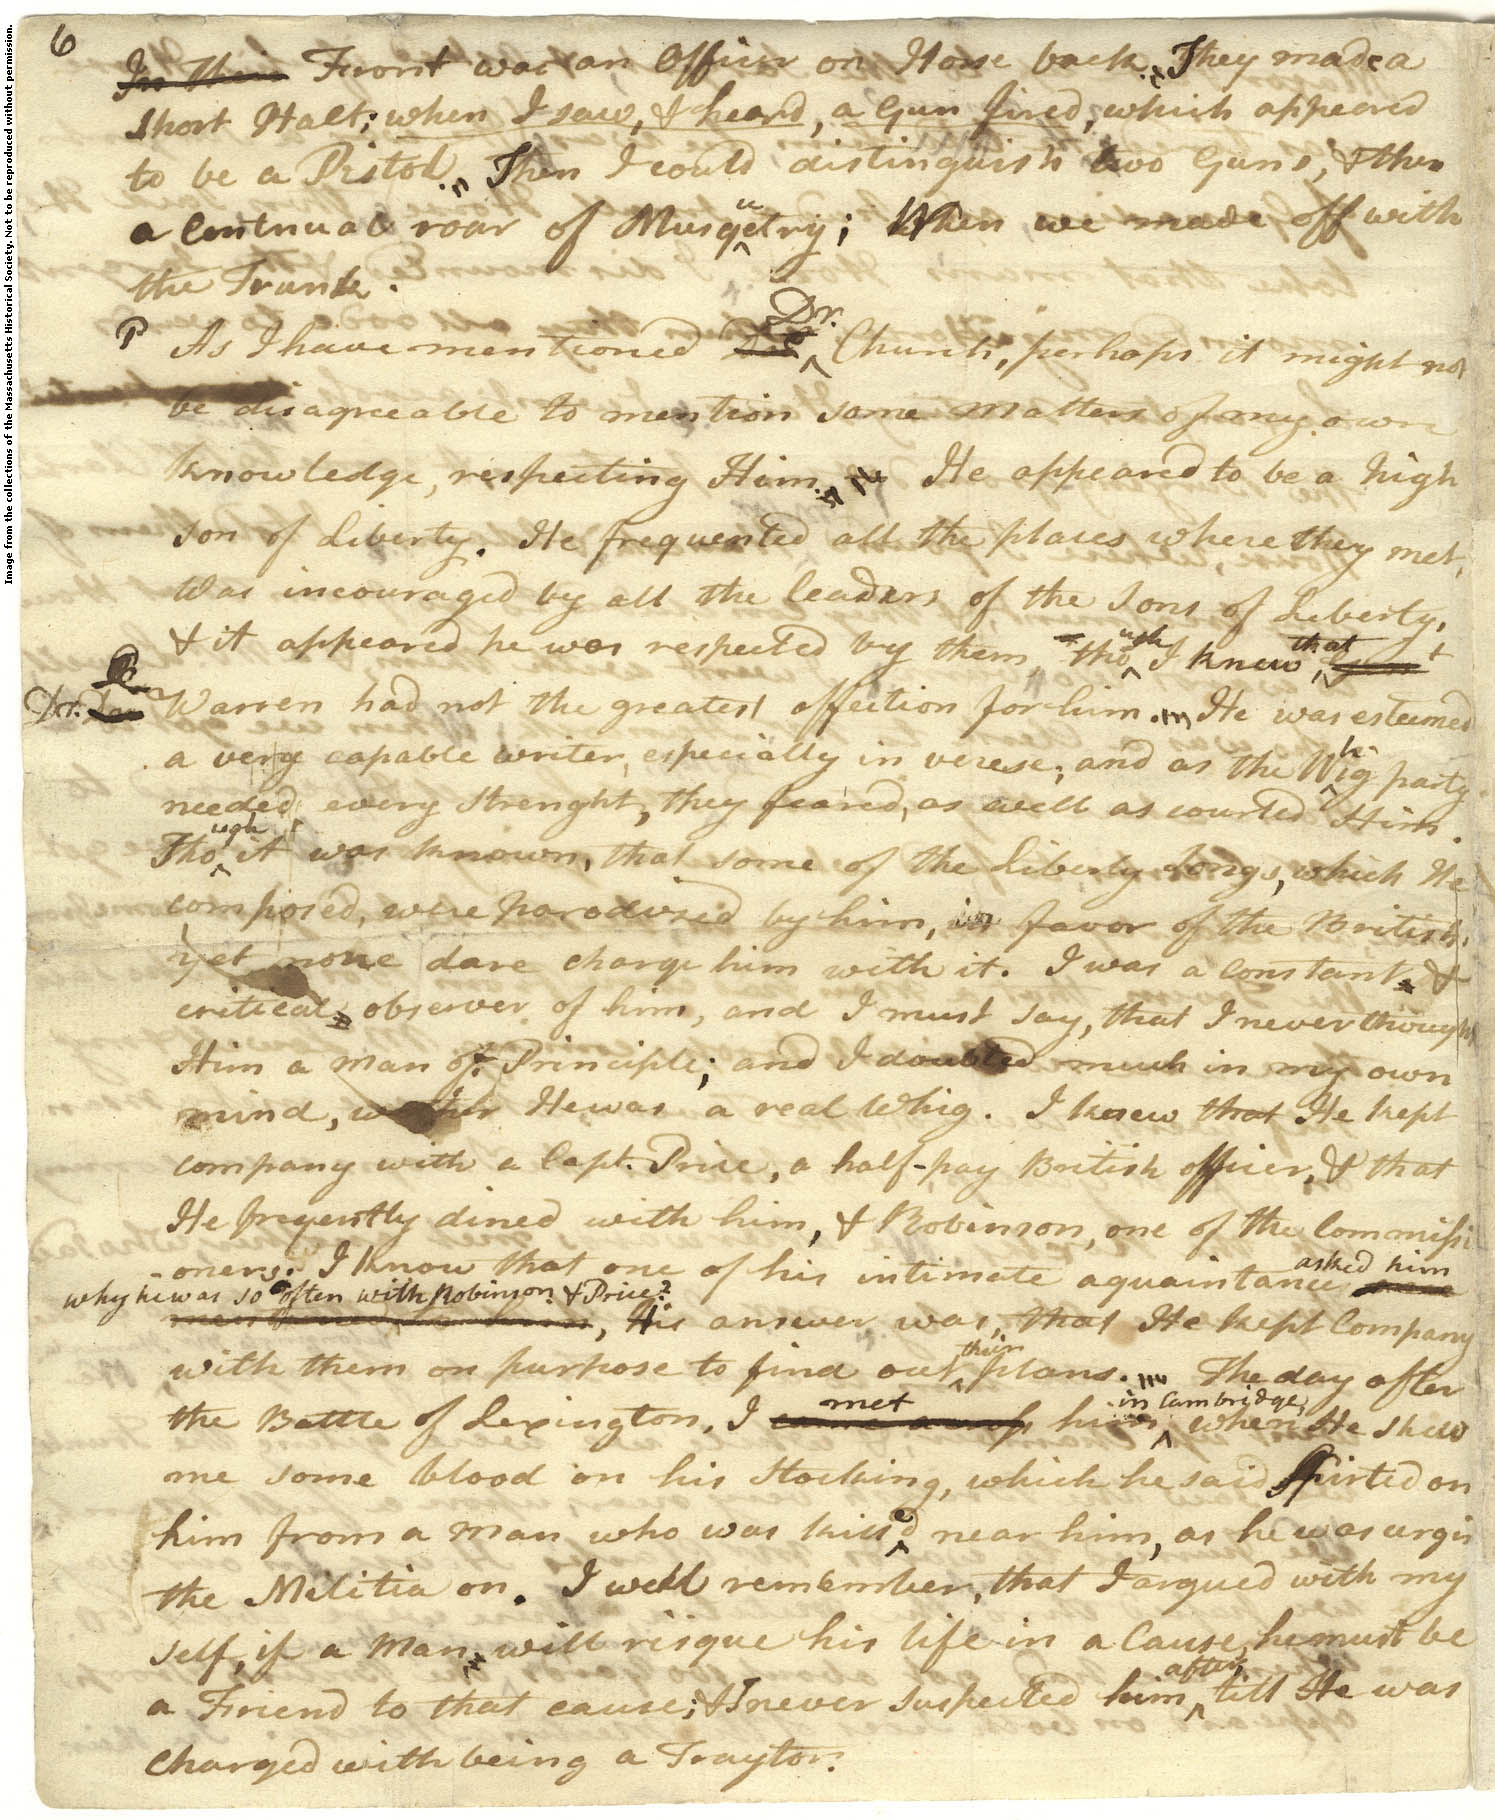 6
In Their Front was an Officer on Horse back. They made a
Short Halt; when I saw, & heard, a Gun fired, which appeared
to be a Pistol. Then I could distinguish two Guns, & then
a Continual roar of Musquetry; When we made off with
the Trunk.
P As I have mentioned Dr. Church, perhaps it might not
be disagreeable to mention some Matters of my own
knowledge, respecting Him. He appeared to be a high
son of Liberty. He frequented all the places where they met,
Was incouraged by all the leaders of the Sons of Liberty,
& it appeared he was respected by them, though I knew that
Dr. Warren had not the greatest affection for him. He was esteemed
a very capable writer, especially in verese; and as the Whig party
needed every Strenght, they feared, as well as courted Him.
Though it was known, that some of the Liberty Songs, which He
composed, were parodized by him, in favor of the British,
yet none dare charge him with it. I was a constant, &
critical observer of him, and I must say, that I never thought
Him a man of Principle; and I doubted much in my own
mind, wether He was a real Whig. I knew that He kept
company with a Capt. Price, a half-pay British officer, & that
He freqently dined with him, & Robinson, one of the Commissi
oners. I know that one of his intimate aquaintance asked him
why he was so often with Robinson & Price?
His answer was, that He kept Company
with them on purpose to find out their plans. The day after
the Battle of Lexington, I met him in Cambridge, when He shew
me some blood on his stocking, which he said spirted on
him from a man who was killed near him, as he was urgin
the Militia on. I well remember, that I argued with my
self, if a Man will risque his life in a Cause, he must be
a Friend to that cause; & I never suspected him after, till He was
charged with being a Traytor.
Image from the collections of the Massachusetts Historical Society. Not to be reproduced without permission.